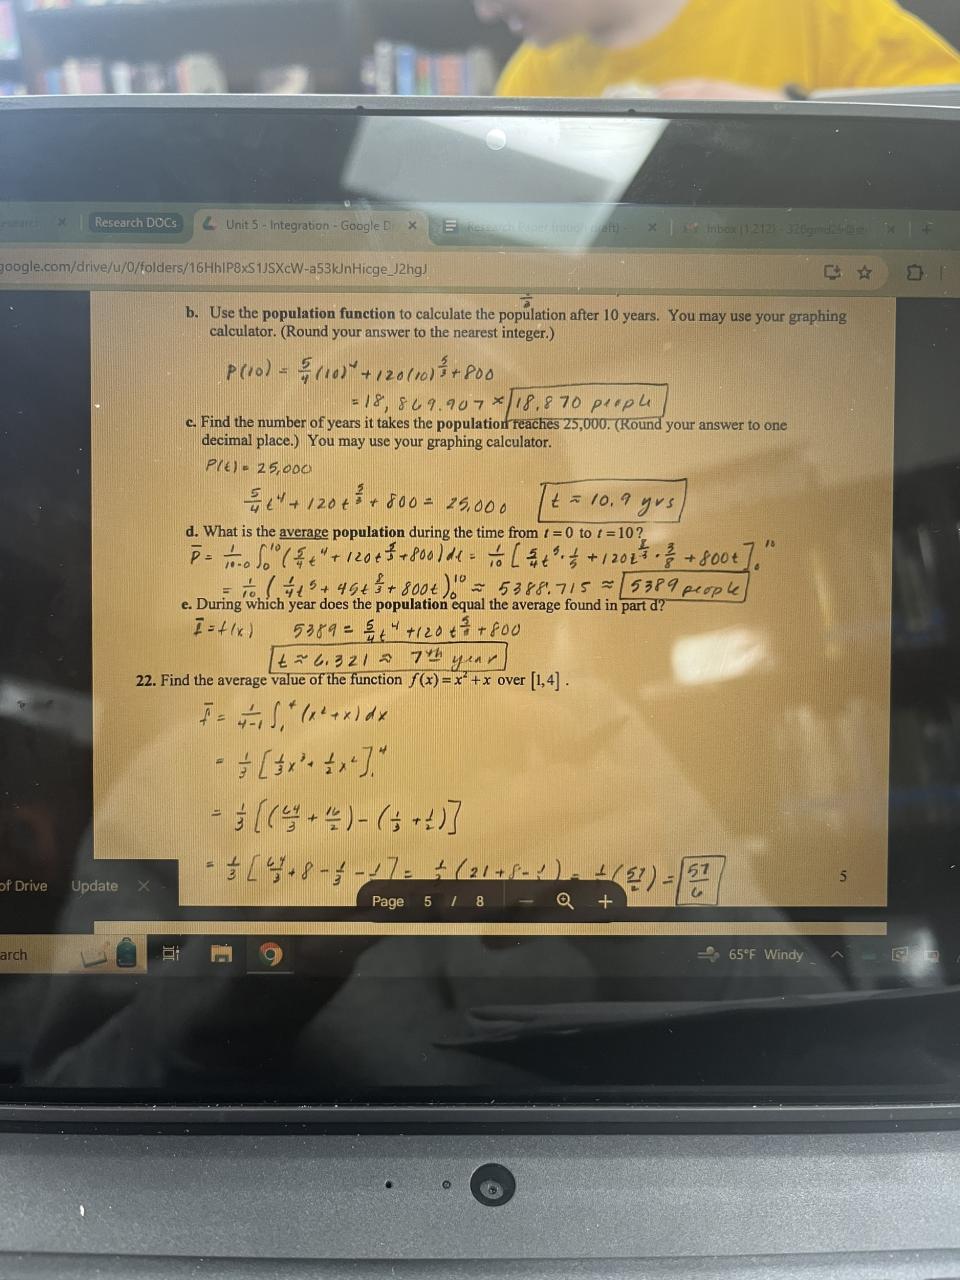 Research DOCs
Unit 5 - Integration - Google D
Inbox (1,212)
google.com/drive/u/0/folders/16HhIP8xS1JSXcW-a53kJnHicge_J2hgJ
b. Use the population function to calculate the population after 10 years. You may use your graphing
calculator. (Round your answer to the nearest integer.)
P(10) = 5/4 (10)^4 + 120(10)^5/3 + 800
= 18,869.907 ≈ 18,870 people
c. Find the number of years it takes the population reaches 25,000. (Round your answer to one
decimal place.) You may use your graphing calculator.
P(t) = 25,000
5/4 t^4 + 120t^5/3 + 800 = 25,000 t ≈ 10.9 yrs
d. What is the average population during the time from t = 0 to t = 10?
P̄ = 1/10-0 ∫₀¹⁰ (5/4 t^4 + 120t^5/3 + 800) dt = 1/10 [5/4 t^5 · 1/5 + 120t^8/3 · 3/8 + 800t]₀¹⁰
= 1/10 (1/4 t^5 + 45t^8/3 + 800t)₀¹⁰ ≈ 5388.715 ≈ 5389 people
e. During which year does the population equal the average found in part d?
= f(x) 5389 = 5/4 t^4 + 120t^5/3 + 800
t ≈ 6.321 ≈ 7th year
22. Find the average value of the function f(x) = x² + x over [1,4].
f̄ = 1/4-1 ∫₁⁴ (x² + x) dx
= 1/3 [1/3 x³ + 1/2 x²]₁⁴
= 1/3 [(64/3 + 16/2) - (1/3 + 1/2)]
= 1/3 [64/3 + 8 - 1/3 - 1/2] = 1/3 (21 + 8 - 1/2) = 1/3 (57/2) = 57/6
5
of Drive Update
Page 5 / 8
arch
65°F Windy